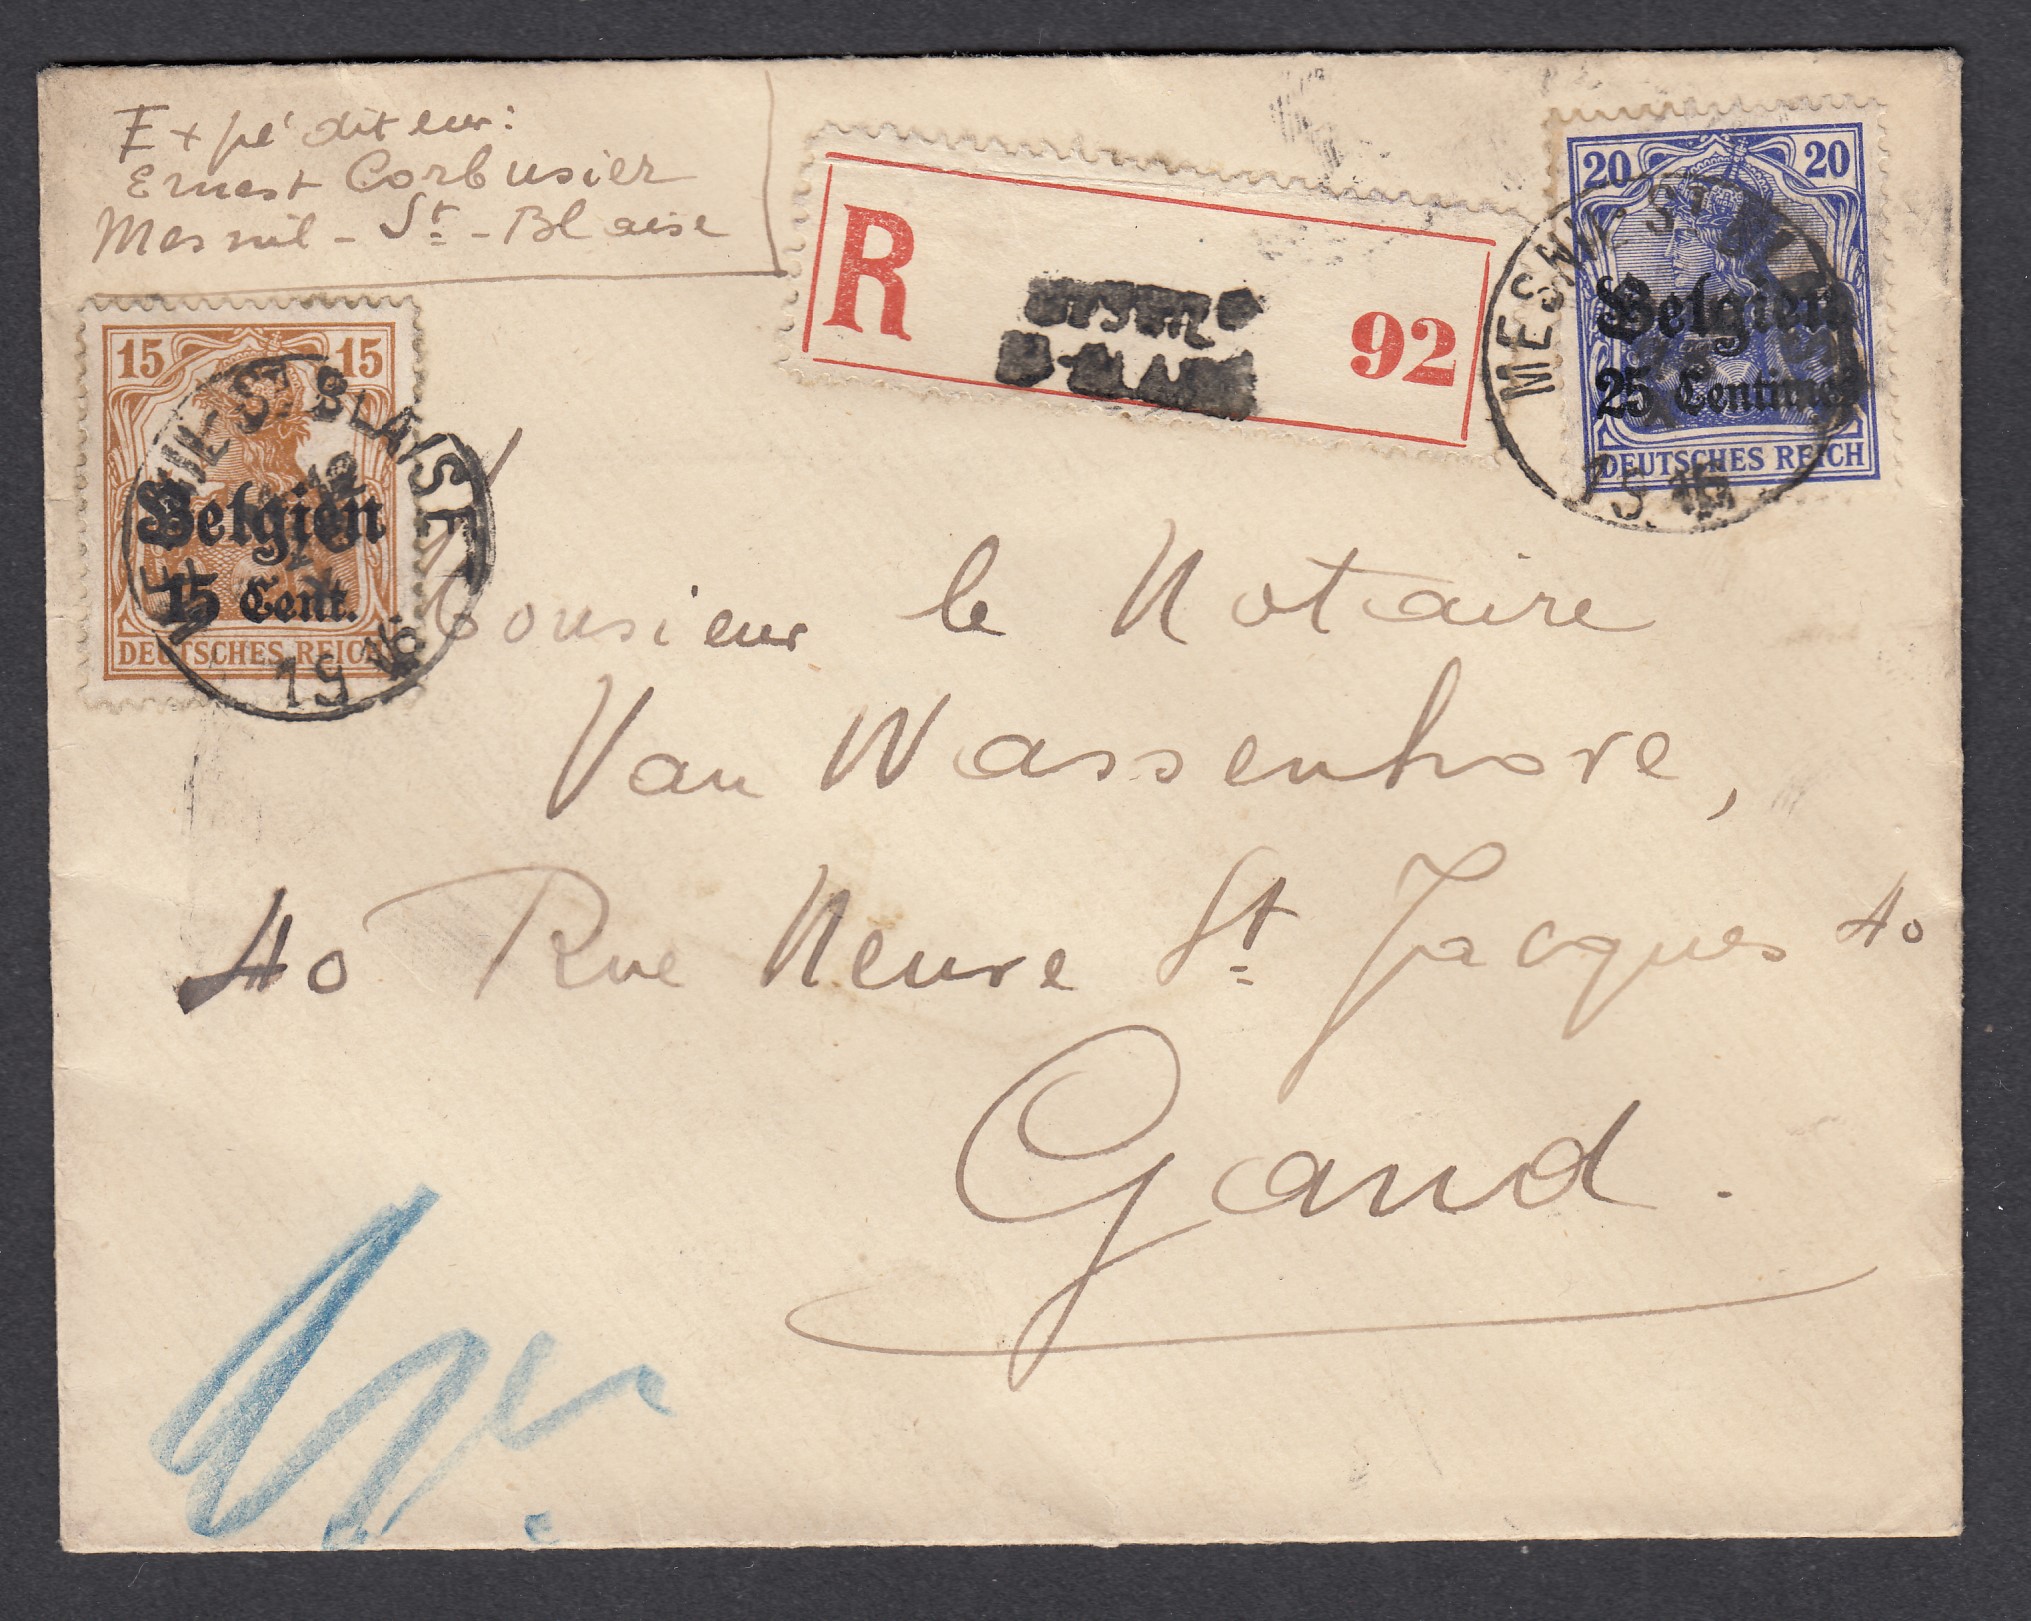 Expéditeur:
Ernest Corbusier
Mesnil-St-Blaise
R
92
20 20
Belgien
25 Centimes
DEUTSCHES REICH
MESNIL-St
15 15
Belgien
15 Cent.
DEUTSCHES REICH
MESNIL-St BLAISE
1916
Monsieur le Notaire
Van Wassenhove,
40 Rue Neuve St Jacques 40
Gand.